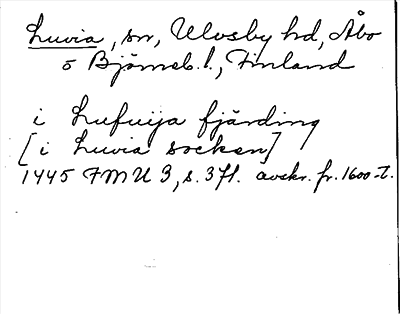 Luvia, sn, Ulvsby hd, Åbo
o Björneb. l., Finland
i Lufuija fjärding
[i Luvia socken]
1445 FMU 3, s. 371. avskr. fr. 1600-t.